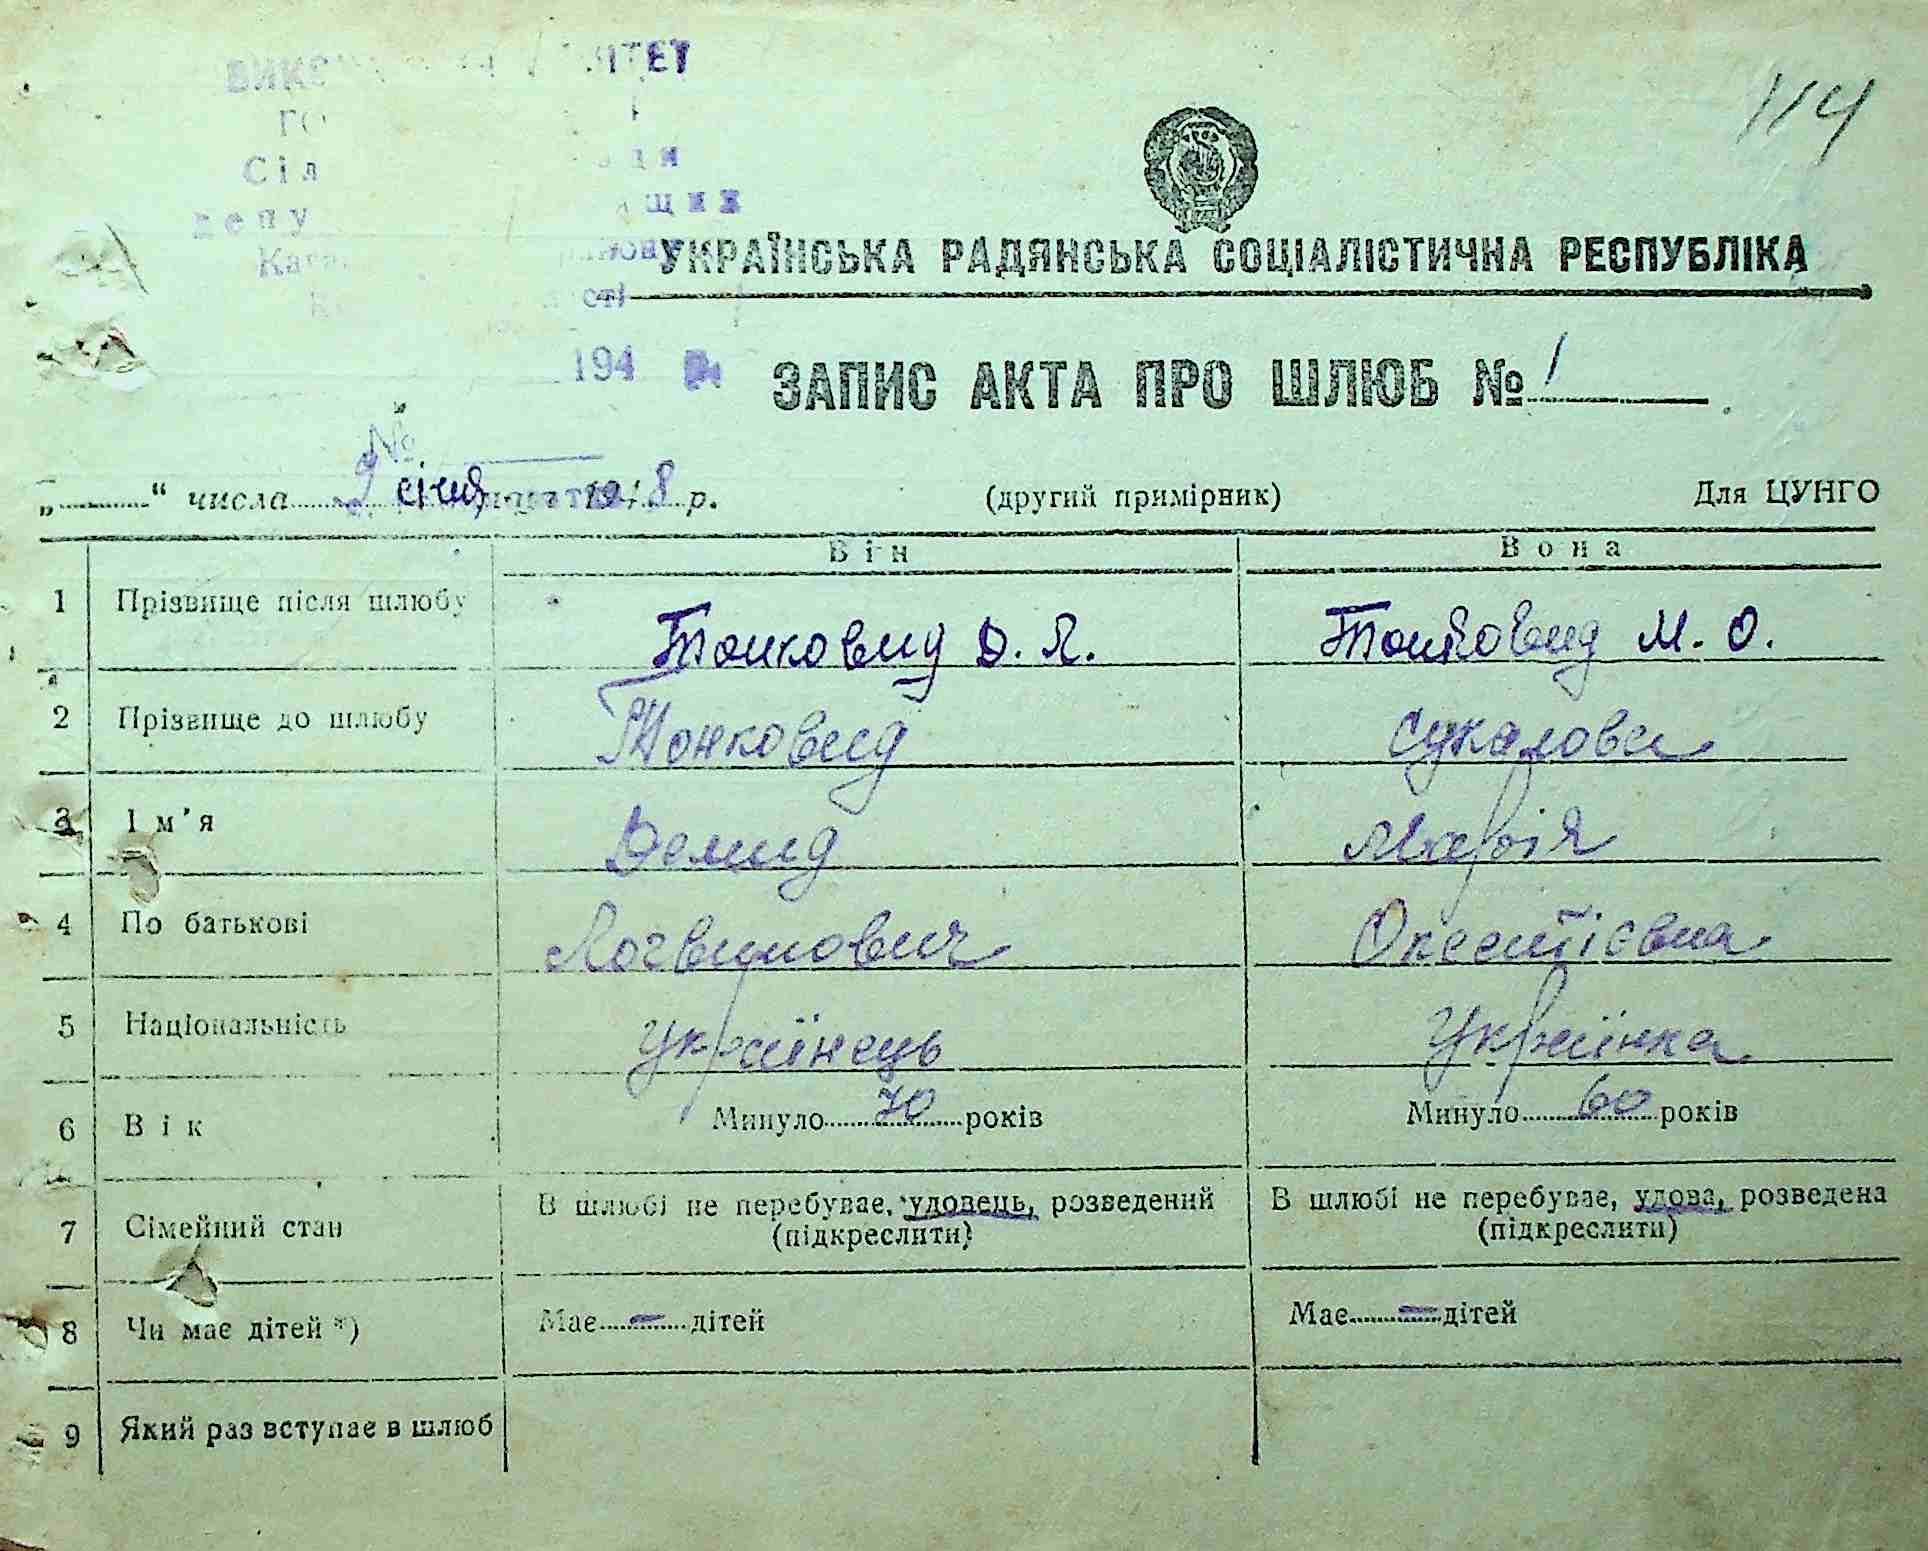 114
УКРАЇНСЬКА РАДЯНСЬКА СОЦІАЛІСТИЧНА РЕСПУБЛІКА
194
ЗАПИС АКТА ПРО ШЛЮБ № 1
№
„ “ числа 9 січня 1948 р. (другий примірник) Для ЦУНГО
Він Вона
1 Прізвище після шлюбу Тонковид Д. Л. Тонковид М. О.
2 Прізвище до шлюбу Тонковид Сукалова
3 Ім’я Демид Марія
4 По батькові Логвинович
5 Національність Українець Українка
6 Вік Минуло 70 років Минуло 60 років
7 Сімейний стан В шлюбі не перебуває, удовець, розведений В шлюбі не перебуває, удова, розведена
(підкреслити) (підкреслити)
8 Чи має дітей *) Має — дітей Має — дітей
9 Який раз вступає в шлюб